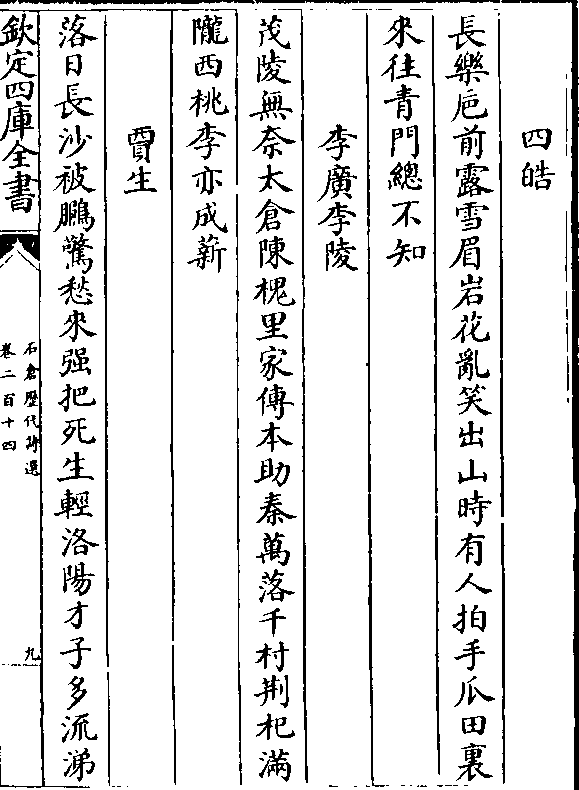 四皓
長樂巵前露雪眉岩花亂笑出山時有人拍手瓜田裏
來往青門總不知
李廣李陵
茂陵無奈太倉陳槐里家傳本助秦萬落千村荆杞滿
隴西桃李亦成薪
賈生
落日長沙被鵩驚愁來强把死生輕洛陽才子多流涕
欽定四庫全書
石倉歷代詩選
卷二百十四
九